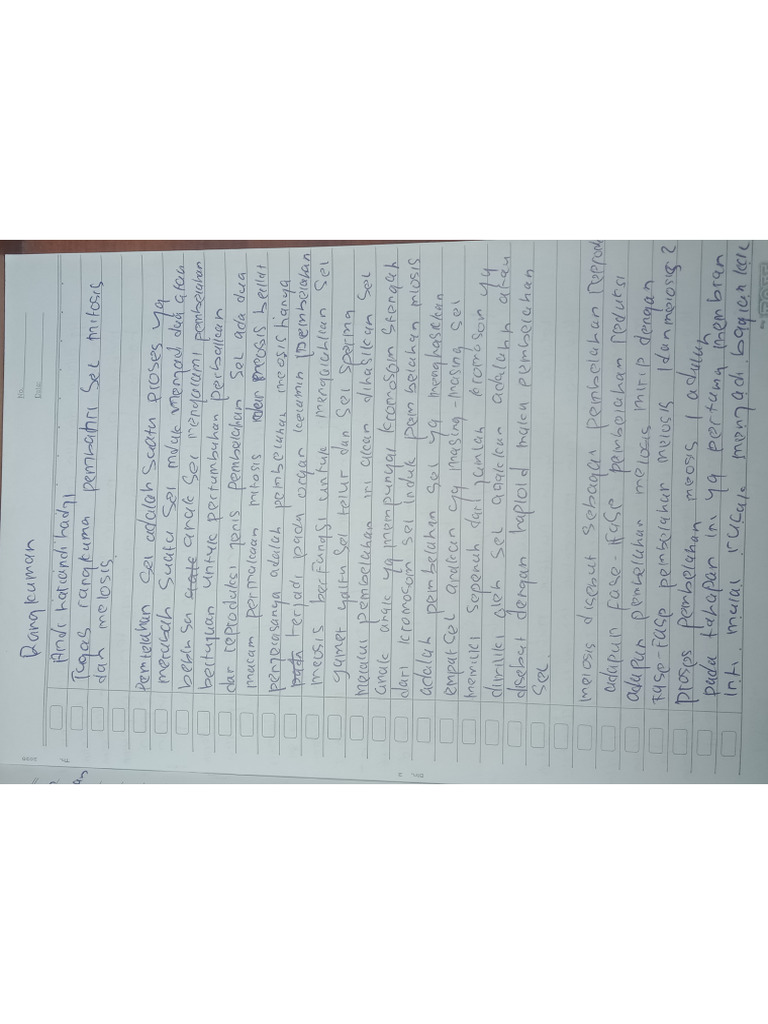 No.
Date
Rangkuman
Andi hariandi hadji
Tugas rangkuma pembahsu sel mitosis
dan meiosis.
Pemtelahan sel adalah suatu proses ya
merubah suatu sel induk menjadi dua atau
bebih sel anak sel mengalami pembelahan
bertujuan untuk pertumbuhan perbaikan
dar reproduksi jenis pembelahan sel ada dua
macam permakaan mitosis meosis berikut
penjelasanya adalah pembelahan meosis hanya
terjadi pada organ kelamin pembelahan
meosis berfungsi untuk mengahasilkan sel
gamet yaitu sel telur dan sel sperma
melalui pembelahan ini akan dihasilkan sel
anak anak ya mempunyai kromosom stengah
dari kromosom sel induk pembelahan miosis
adalah pembelahan sel ya menghasilkan
empat sel anakan ya masing-masing sel
memiliki separuh dari jumlah kromoson ya
dimiliki oleh sel anakan adalahh atau
disebat dengan haploid maka pembelahan
sel.
meiosis disebut sebagan pembelahan
adapun fase-fase pembelahan reduksi
adapun pembelahan meiosis mirip dengan
Fase-Fase pembelahan meiosis 1 dan meiosis 2
proses pembelahan meosis 1 adalah
pada tahapan ini ya pertama membran
inti mulai rusak menjadi bagian kecil